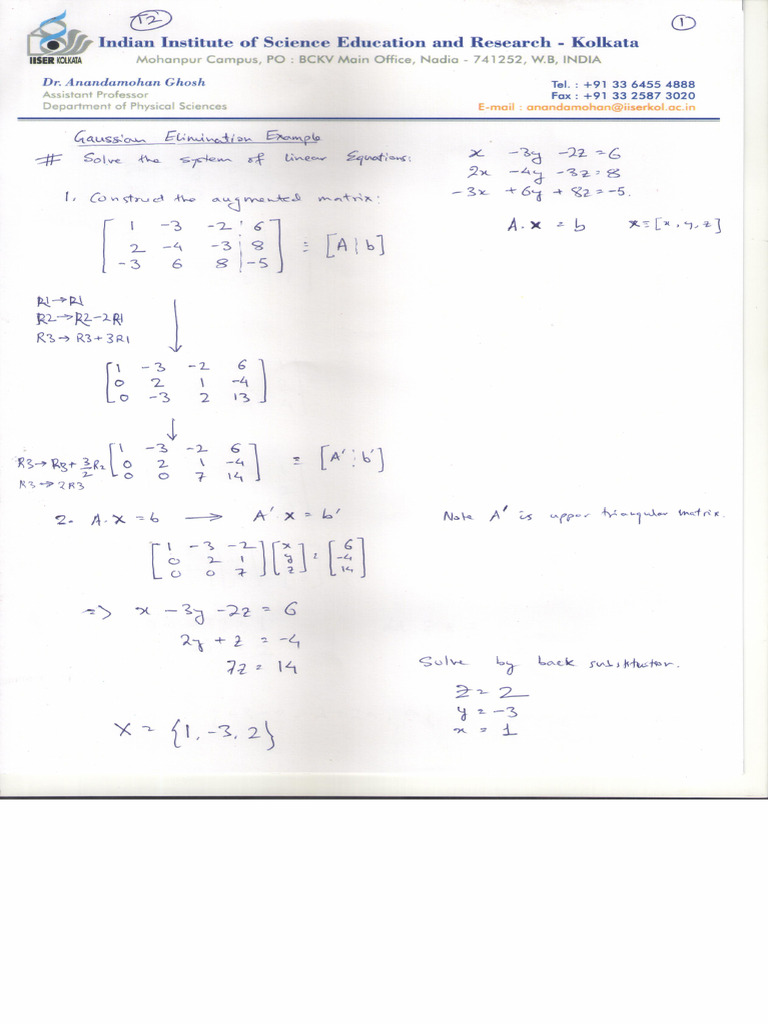 T2
1
IISER KOLKATA
Indian Institute of Science Education and Research - Kolkata
Mohanpur Campus, PO : BCKV Main Office, Nadia - 741252, W.B, INDIA
Dr. Anandamohan Ghosh
Assistant Professor
Department of Physical Sciences
Tel. : +91 33 6455 4888
Fax : +91 33 2587 3020
E-mail : anandamohan@iiserkol.ac.in
Gaussian Elimination Example
# Solve the system of linear Equations:
x -3y -2z = 6
2x -4y -3z = 8
-3x +6y + 8z = -5.
1. Construct the augmented matrix:
A.x = b x ≡ [x, y, z]
[ 1 -3 -2 | 6
2 -4 -3 | 8
-3 6 8 | -5 ] ≡ [A | b]
R1 → R1
R2 → R2 - 2R1
R3 → R3 + 3R1
[ 1 -3 -2 6
0 2 1 -4
0 -3 2 13 ]
R3 → R3 + 3/2 R2
R3 → 2R3
[ 1 -3 -2 6
0 2 1 -4
0 0 7 14 ] ≡ [A' | b']
2. A.x = b → A'.x = b'
Note A' is upper triangular matrix.
[ 1 -3 -2 ] [ x ] = [ 6 ]
[ 0 2 1 ] [ y ] [ -4 ]
[ 0 0 7 ] [ z ] [ 14 ]
=> x - 3y - 2z = 6
2y + z = -4
7z = 14
Solve by back substitution.
z = 2
y = -3
x = 1
X = {1, -3, 2}